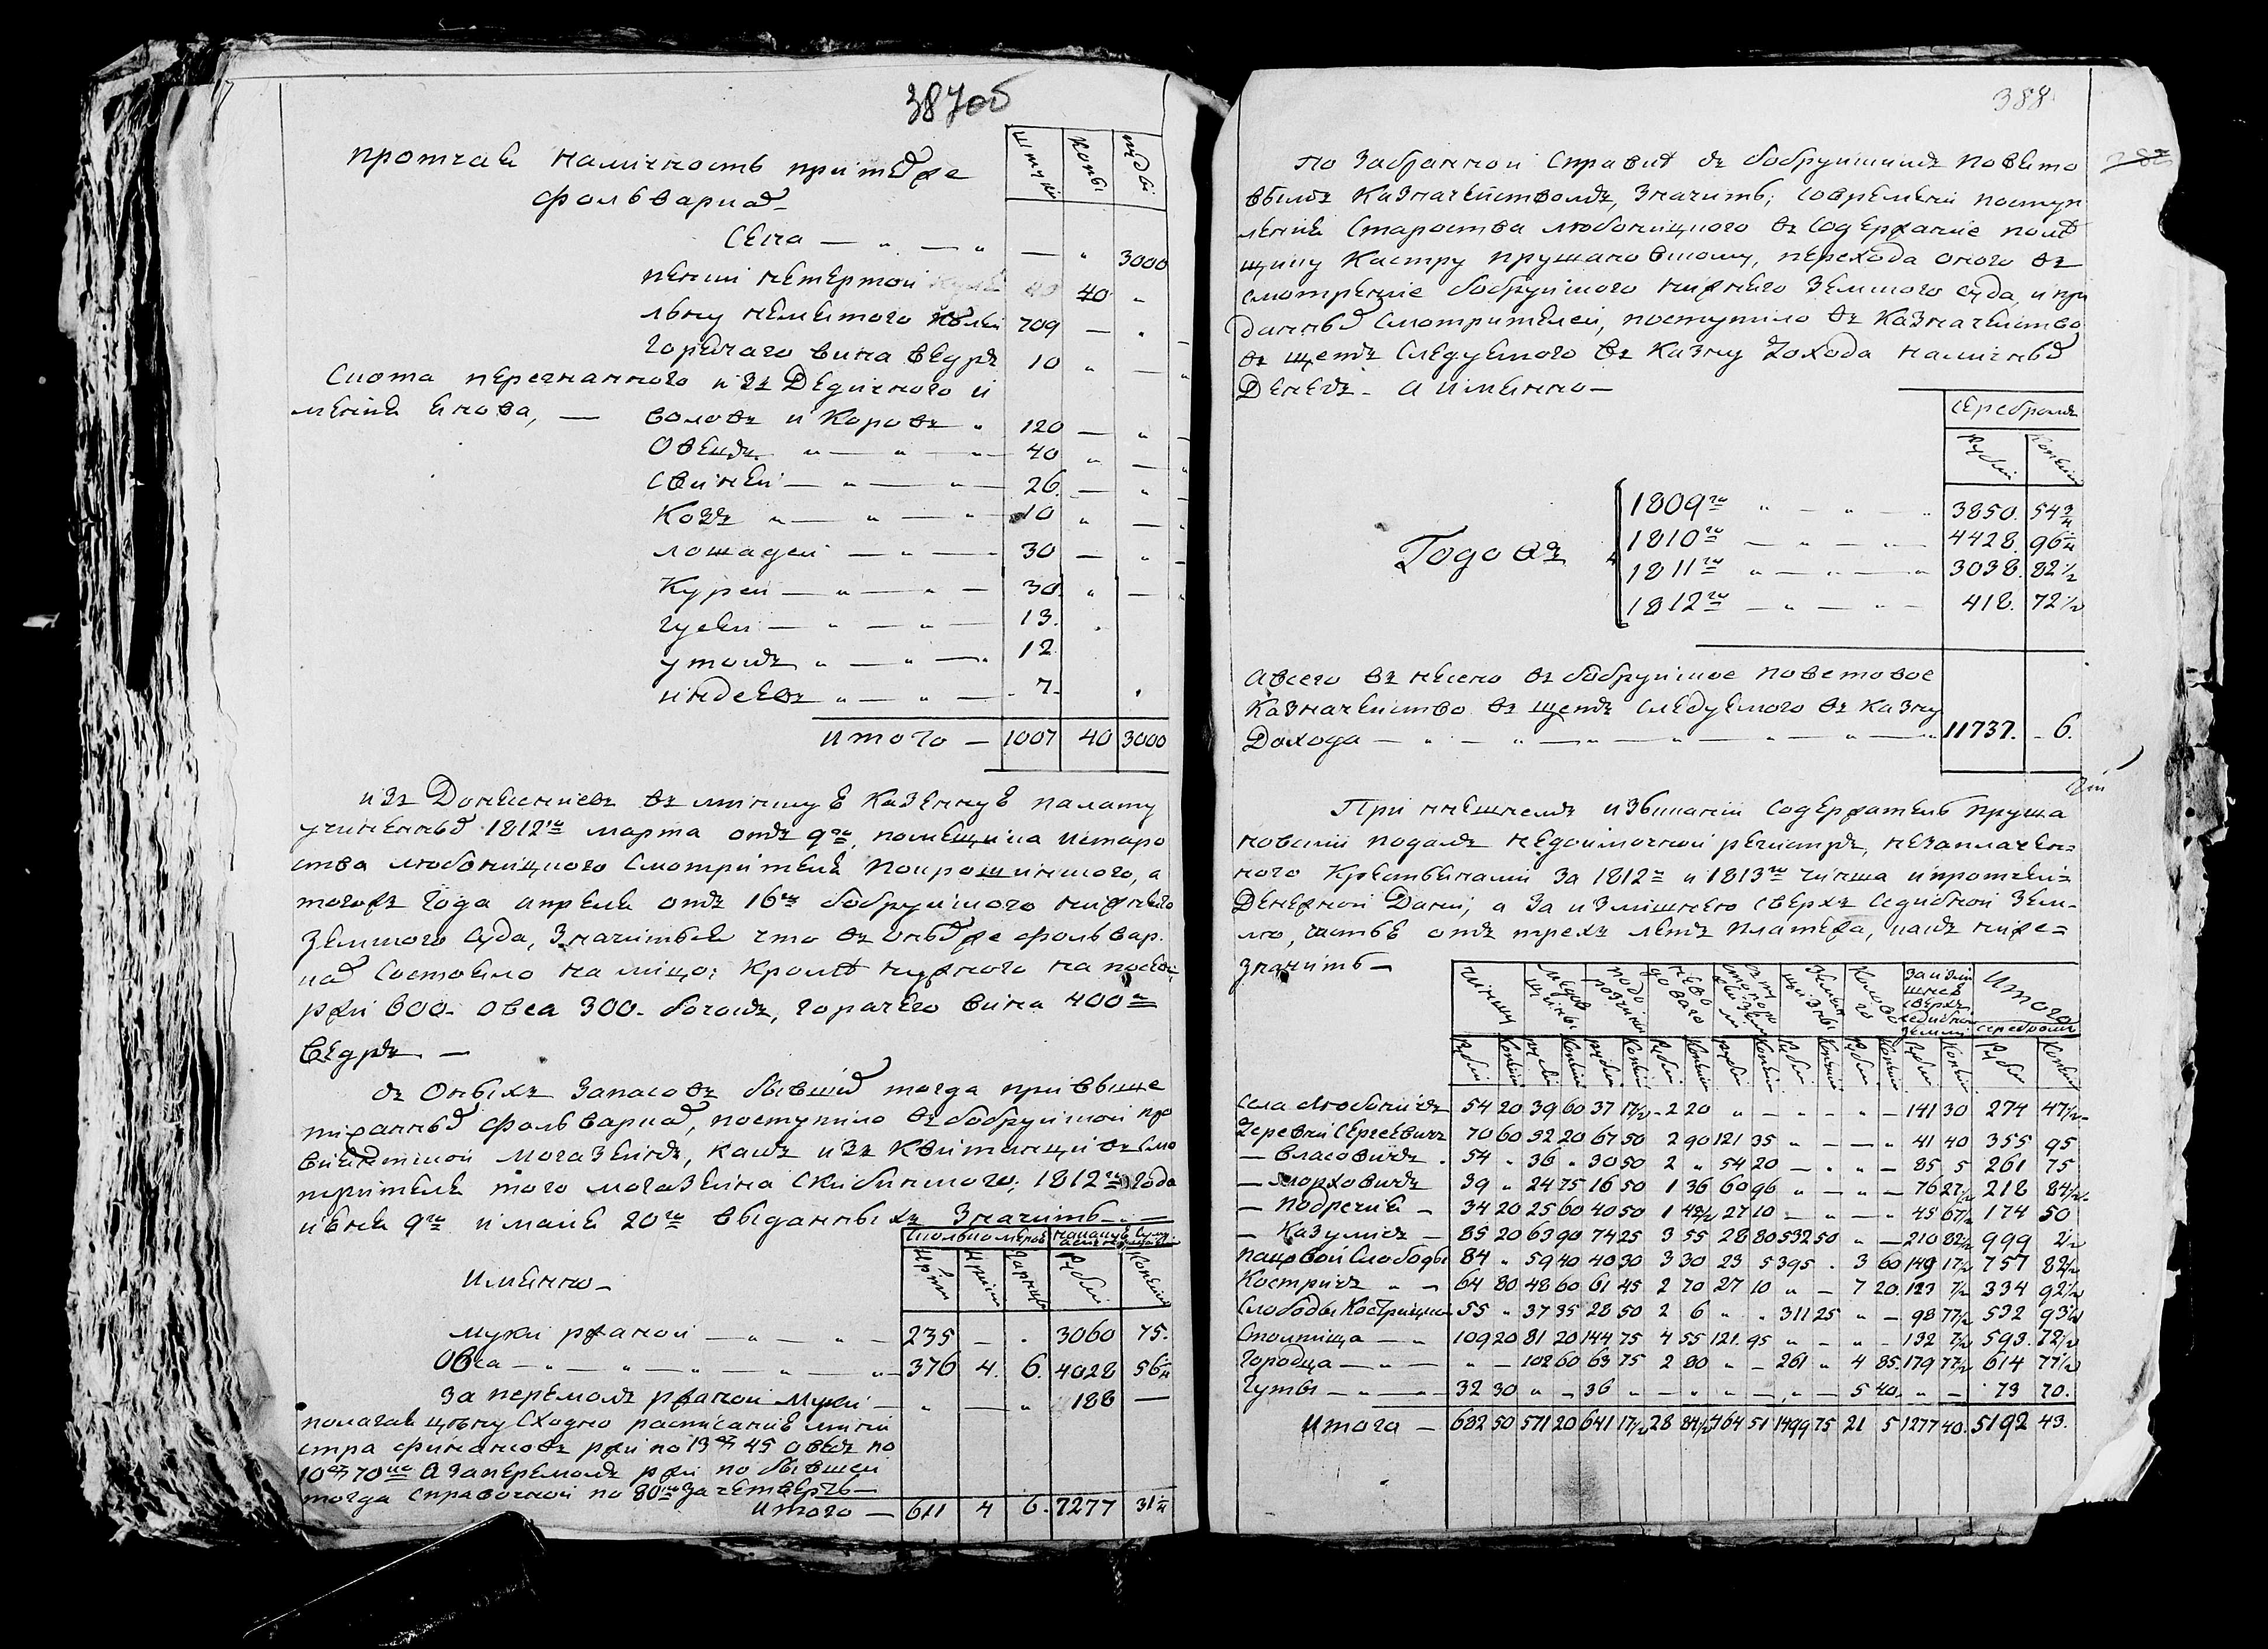 387об
протчая наличность при тѣхже
фольваркахъ
штуки копы пуды
Сена — „ — „ — „ 3000
пенки нетертой 40 „
льну немятого 709 — „
горячаго вина ведръ 10 „ —
Скота перегнанного изъ Дедичного и
мения Енова, —
воловъ и Коровъ „ 120 — „
Овецъ „ — „ — „ 40 „ —
свиней — „ — „ — 26. — „
Козъ „ — „ — „ 10 „ —
лошадей — „ — 30 — „
Курей — „ — „ — 30. „ —
гусей — „ — „ — 13. „
утокъ „ — „ — „ 12
индеевъ „ — „ — 7. „
итого — 1007 40 3000
изъ Донесениевъ въ минскую Казенную палату
учиненныхъ 1812го марта отъ 9го, помещика и старо
ства любоницкого Смотрителя Покрошинского, а
тогожъ года апреля отъ 16го бобруйского нижнего
Земского Суда, Значиться что въ оныхже фольвар.
кахъ Состояло на лицо: Кроме нужного на посевъ
ржи 600. овса 300. бочокъ, горячего вина 400
ведръ. —
въ Оныхъ запасовъ бывшихъ тогда при выше
писанныхъ фольваркахъ, поступило въ бобруйской про
виантской магазейнъ, какъ изъ Квитанций Смо
трителя того магазейна Скибинского, 1812го года
июня 9го и маия 20го выданныхъ Значить —
Имянно —
Рубли Копейки
муки ржаной — „ — „ — 235 — „ 3060 75.
Овса — „ — „ — „ — „ — 376 4. 6. 4028 56¼
за перемолъ ржаной муки — „ — „ 188 —
полагая цену Сходно расписания мини
стра финансовъ ржи по 13 45 овесъ по
10 70 а за перемолъ ржи по бывшей
тогда справочной по 80 за четверть —
итого — 611 4 6. 7277 31¼
388
по забранной Справке въ бобруйскимъ повето
вымъ Казначействомъ, значить, со времени поступ
ления Староства любоницкого въ содержание поме
щику Кастру прушановскому, перехода оного въ
смотрение бобруйского нижнего Земского суда, и при
данныхъ Смотрителей, поступило въ Казначейство
въ щетъ Следуемого въ Казну Дохода наличныхъ
Денегъ. а имянно —
серебромъ
Рубли Копейки
Годовъ
1809го „ — „ — „ 3850. 54¾
1810го — „ — „ — 4428. 96¼
1811го „ — „ — „ 3038. 82½
1812го — „ — „ — 418. 72½
а всего въ несено въ бобруйское поветовое
Казначейство въ щетъ следуемого въ казну
Дохода — „ — „ — „ — „ — „ — „ 11737. 6.
При нынешнемъ изыскании Содержатель пруша
новский подалъ недоимочной регистръ, незаплачен=
ного Крестьянами за 1812го и 1813го чинша и протчей=
Денежной Дани; а за излишнею сверхъ седибной Зем-
лю, отъ трехъ летъ платежа, какъ ниже=
значить —
чиншу подо- за изли шнею сверхъ седибной земли Итого серебромъ
Рубли Копейки Рубли Копейки Рубли Копейки Рубли Копейки Рубли Копейки Рубли Копейки Рубли Копейки Рубли Копейки Рубли Копейки
села Любоничъ 54 20 39 60 37 17½ 2 20 „ — „ — „ — 141 30 274 47½
Деревни Сергеевичъ 70 60 52 20 67 50 2 90 121 35 „ — — „ 41 40 355 95
— Власовичъ. 54 „ 36 „ 30 50 2 „ 54 20 — „ „ — 85 5 261 75
— Морховичъ 39 „ 24 75 16 50 1 36 60 96 „ — „ — 76 27½ 218 84½
— Подречия — 34 20 25 60 40 50 1 42½ 27 10 — „ — „ 45 67½ 174 50
— Казуличъ — 85 20 63 90 74 25 3 55 28 80 532 50 „ — 210 82½ 999 2½
пацовой Слободы 84 „ 59 40 40 30 3 30 23 5 395 . 3 60 149 17½ 757 82½
Костричъ „ — „ 64 80 48 60 61 45 2 70 27 10 „ — 7 20. 123 7½ 334 92½
Слободы Кострицкой 55 „ 37 35 28 50 2 6 „ „ 311 25 „ — 98 77½ 532 93½
Столпища — „ 109 20 81 20 144 75 4 55 121. 95 „ — „ — 132 7½ 593. 72½
Городца — „ — „ — 102 60 63 75 2 80 „ — 261 „ 4 85. 179 77½ 614 77½
Гуты — „ — „ 32 30 „ — 36 „ — „ „ — „ — 5 40. „ — 73 70.
Итого — 682 50 571 20 641 17½ 28 84½ 464 51 1499 75 21 5 1277 40. 5192 43.